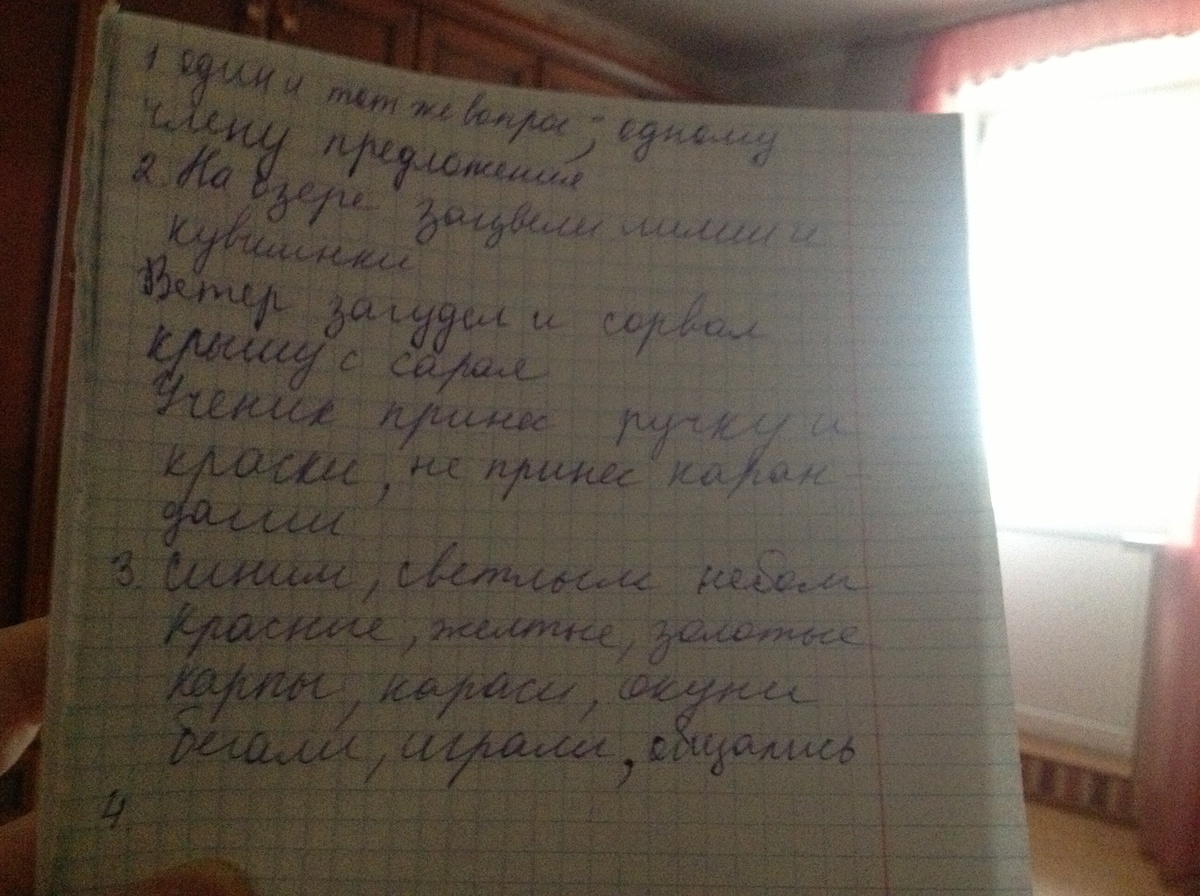 1 один и тот же вопрос -; одному
члену предложения
2. На озере зацвели лилии и
кувшинки
Ветер загудел и сорвал
крышу с сарая
Ученик принес ручку и
краски, не принес каран
даши
3. Синим, светлым небом
Красные, желтые, золотые
Карпы, караси, окуни
бегали, играли, общались
4.